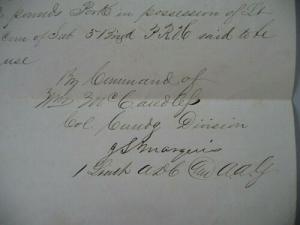 pounds Pork in possession of Lt
of Sub 31 said to be
use
By Command of
Wm McCandless
Col. Comdg Division
J S Marquis
1 Lieut A D C A A A G